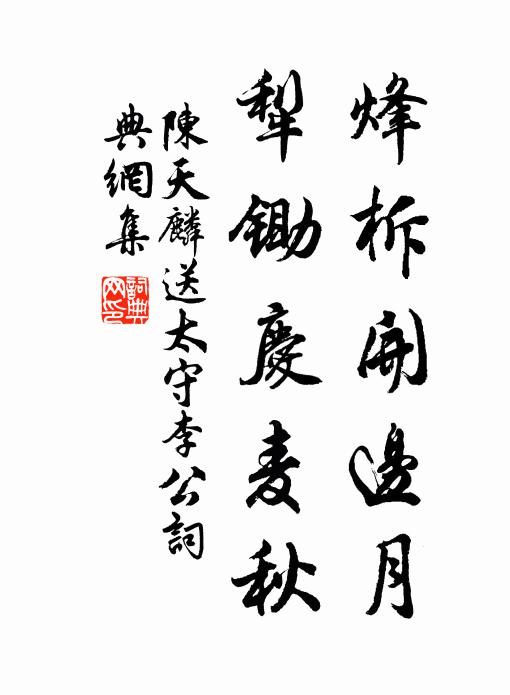 烽柝開邊月
犁鋤慶麦秋
陳天麟送太守李公詞
典網集
詞典網印